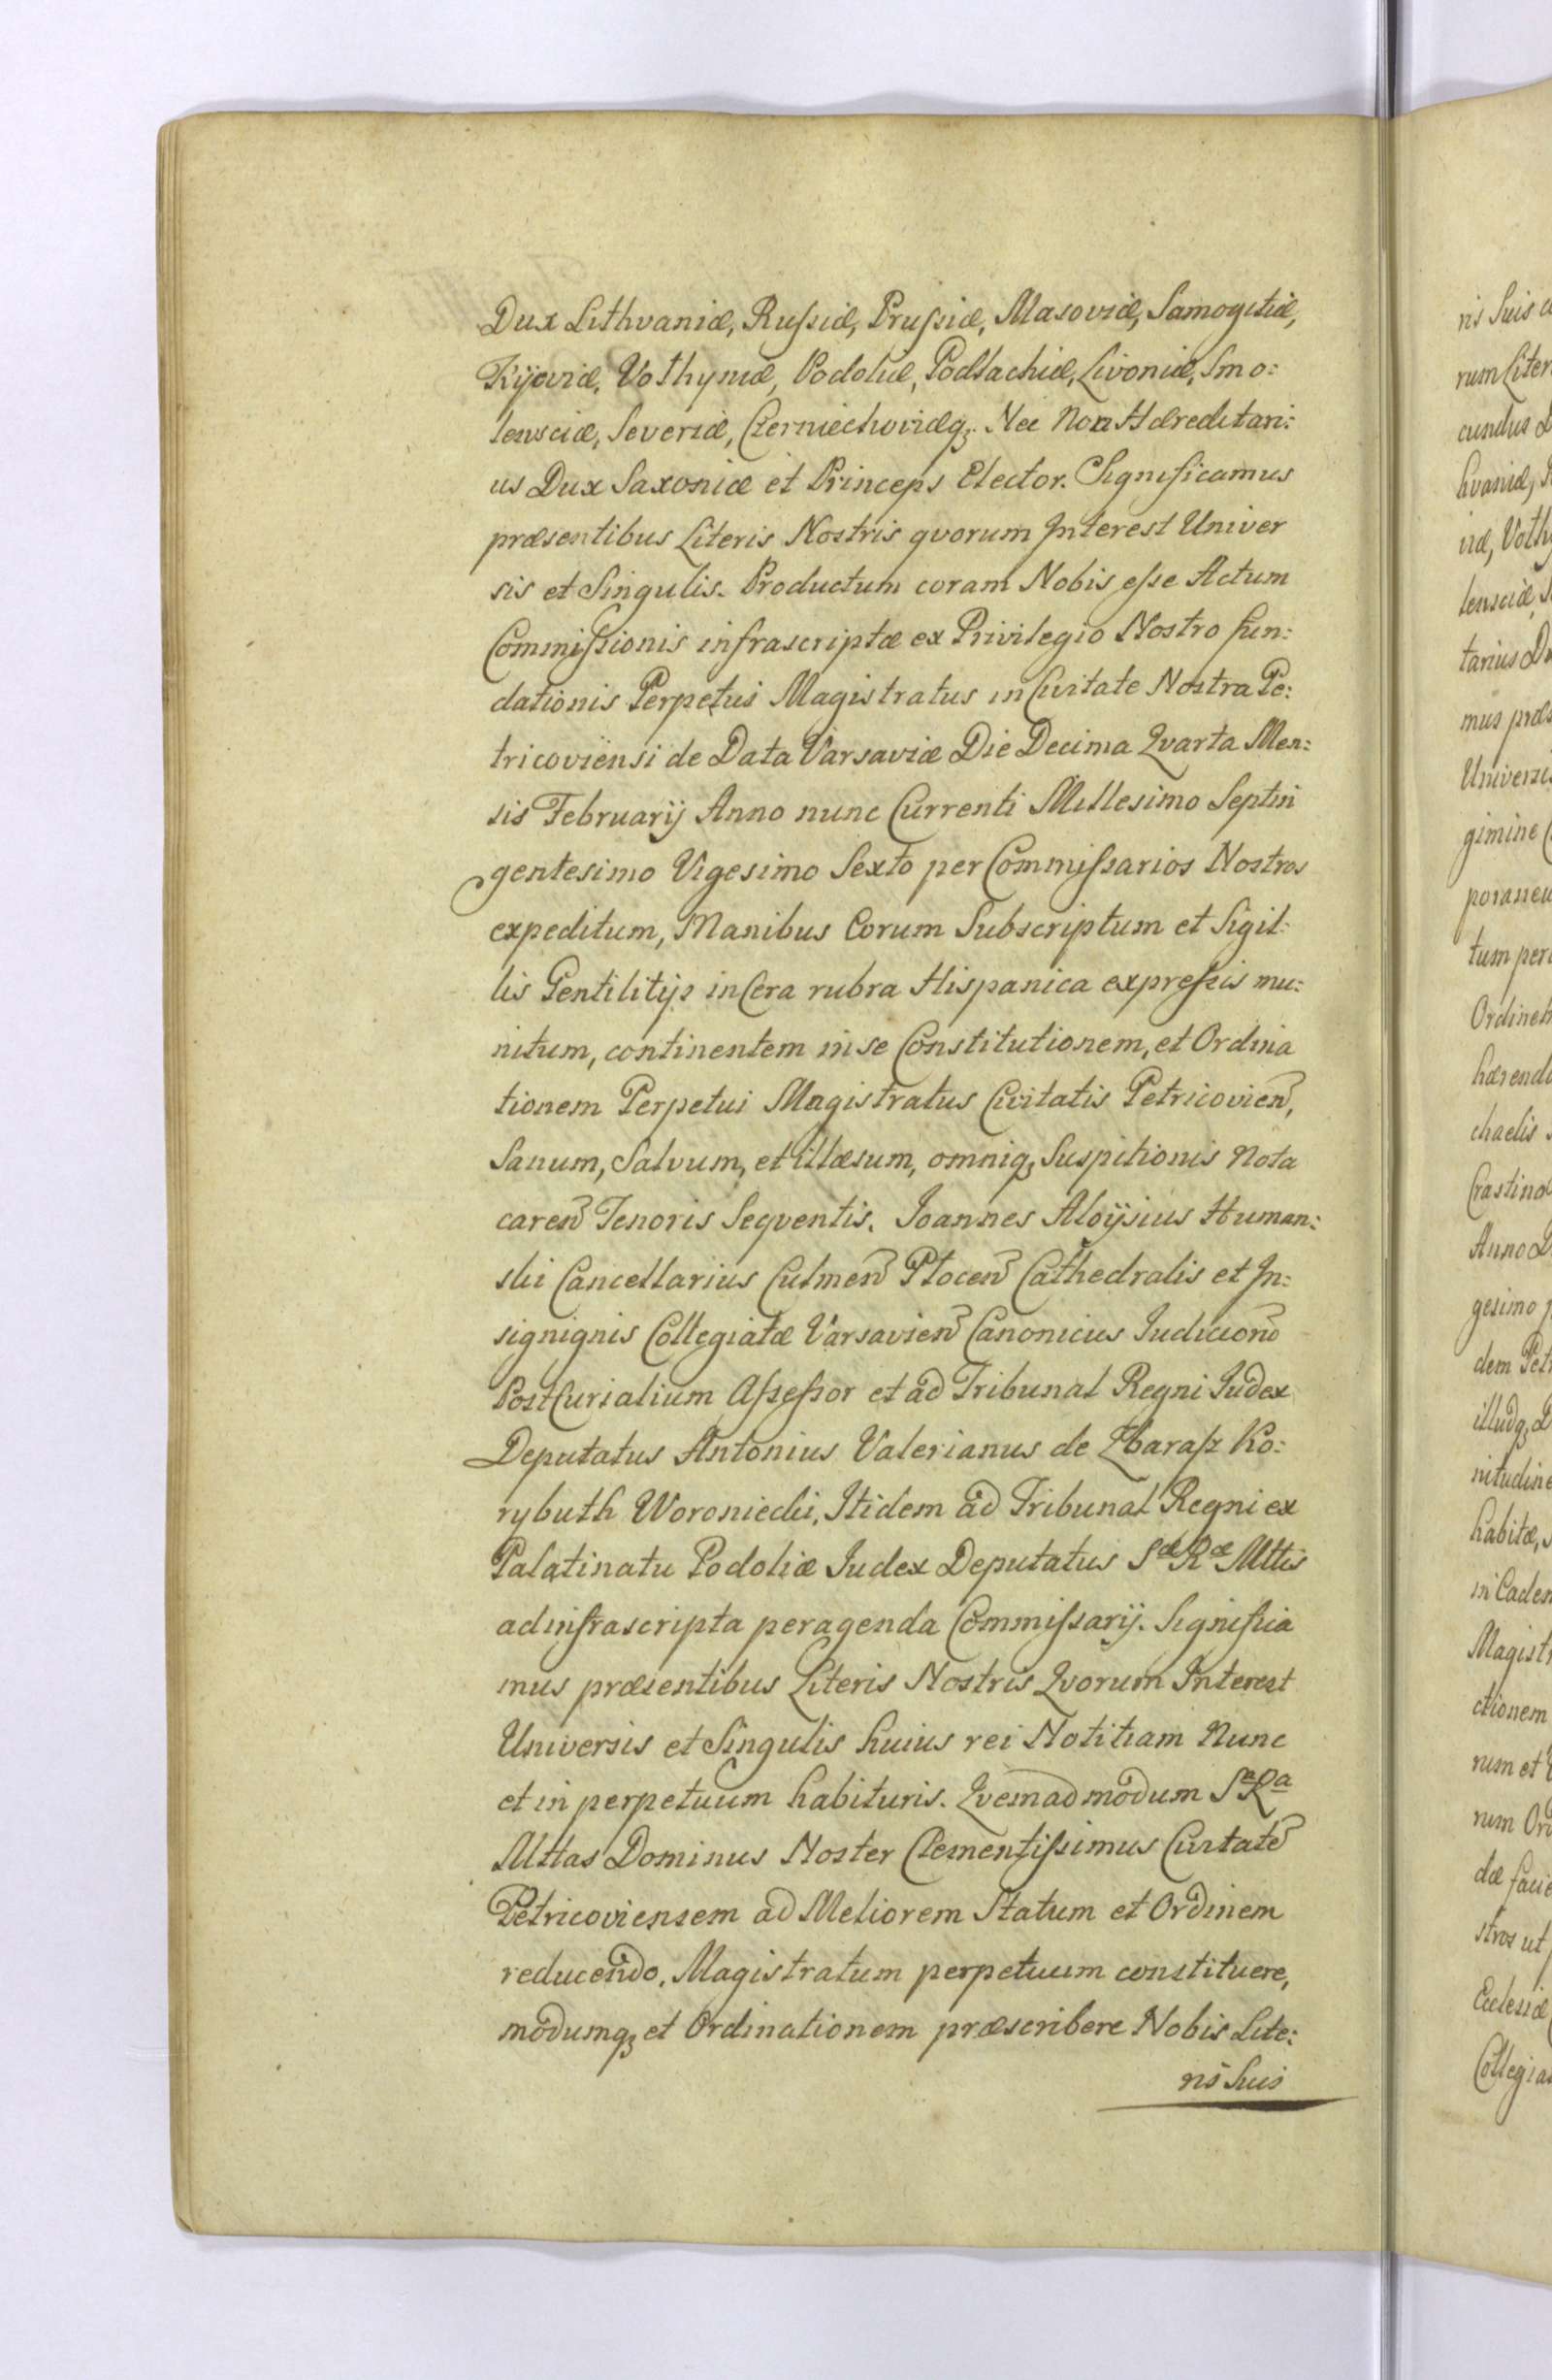 Dux Lithvaniæ, Rußiæ, Prußiæ, Masoviæ, Samogitiæ,
Kijoviæ, Volhyniæ, Podoliæ, Podlachiæ, Livoniæ, Smo:
lensciæ, Severiæ, Czerniechoviæq; Nec Non Hæreditari:
us Dux Saxoniæ et Princeps Elector. Significamus
præsentibus Literis Nostris qvorum Interest Univer
sis et Singulis. Productum coram Nobis eße Actum
Commißionis infrascriptæ ex Privilegio Nostro fun:
dationis Perpetui Magistratus in Civitate Nostra Pe:
tricoviensi de Data Varsaviæ Die Decima Qvarta Men:
sis Februarij Anno nunc Currenti Millesimo Septin
gentesimo Vigesimo Sexto per Commißarios Nostros
expeditum, Manibus Eorum Subscriptum et Sigil:
lis Gentilitijs in Cera rubra Hispanica expreßis mu:
nitum, continentem in se Constitutionem, et Ordina
tionem Perpetui Magistratus Civitatis Petricovien,
Sanum, Salvum, et illæsum, omniq; Suspitionis Nota
caren Tenoris Seqventis. Joannes Aloÿsius Human:
ski Cancellarius Culmen Plocen Cathedralis et In:
signignis Collegiatæ Varsavien Canonicus Judicion
Post Curialium Aßeßor et ad Tribunal Regni Judex
Deputatus Antonius Valerianus de Zbaraß Ko:
rybuth Woroniecki, Itidem ad Tribunal Regni ex
Palatinatu Podoliæ Judex Deputatus Sæ Ræ Mttis
ad infrascripta peragenda Commißarij. Significa
mus præsentibus Literis Nostris Qvorum Interest
Universis et Singulis huius rei Notitiam Nunc
et in perpetuum habituris. Qvemadmodum Sa Ra
Mttas Dominus Noster Clementißimus Civitate
Petricoviensem ad Meliorem Statum et Ordinem
reducendo, Magistratum perpetuum constituere,
modumq; et Ordinationem præscribere Nobis Lite:
ris Suis
ris Suis
rum Liter
cundus
hvaniæ,
iæ, Volh
lensciæ,
tarius Du
mus præs
Universis
gimine
poraneu
tum per
Ordineh
hærend
chaelis
Crastino
Anno
gesimo
dem Petr
illudq;
nitudine
habitæ,
in Caden
Magistr
ctionem
rum et
rum Ord
dæ facie
stros ut
Ecclesiæ
Collegia